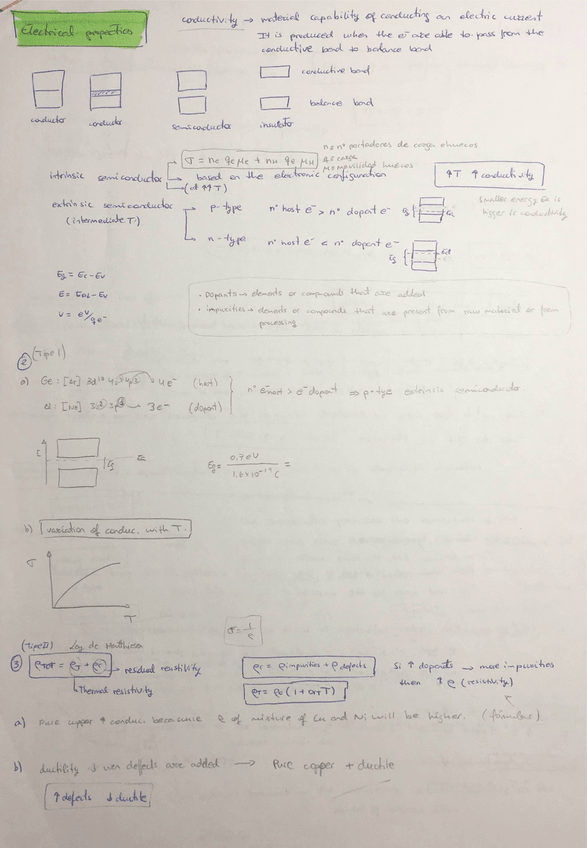 Electrical properties
coductivity → material capability of conducting an electric current
It is produced when the e⁻ are able to pass from the
conductive band to balance band
conductive band
balance band
conductor
conductor
semiconductor
insulator
n = nº portadores de carga
σ = ne qe μe + nH qe μH
q = carga
intrinsic semiconductor
based on the electronic configuration
(at ↑↑T)
↑T ↑ conductivity
extrinsic semiconductor
p-type nº host e⁻ > nº dopant e⁻
Smaller energy
bigger is conductivity
(intermediate T)
n-type nº host e⁻ < nº dopant e⁻
Eg
Ed
Eg = Ec - Ev
V = eV/qe⁻
· Dopants → elements or compounds that are added
· impurities → elements or compounds that are present form raw material or from
processing
② (Tipe I)
a) Ge: [Ar] 3d¹⁰ 4s² 4p² → 4e⁻ (host)
nº e⁻ host > e⁻ dopant ⇒ p-type extrinsic semiconductor
[Ne] 3s² 3p¹ → 3e⁻ (dopant)
E
Eg
Eg = 0,7 eV / 1,6×10⁻¹⁹ C =
b) variation of conduc. with T.
σ
T
σ = 1/ρ
(Tipe II) Ley de Matthiesen
③ ρTOT = ρT + ρr → residual resistivity
Thermal resistivity
ρr = ρimpurities + ρdefects
ρT = ρ0 (1 + αT T)
Si ↑ dopants → more impurities
then ↑ ρ (resistivity)
a) Pure copper ↑ conduc. because ρ of mixture of Cu and Ni will be higher. (fórmulas)
b) ductility ↓ wen defects are added → Pure copper + ductile
↑ defects ↓ ductile